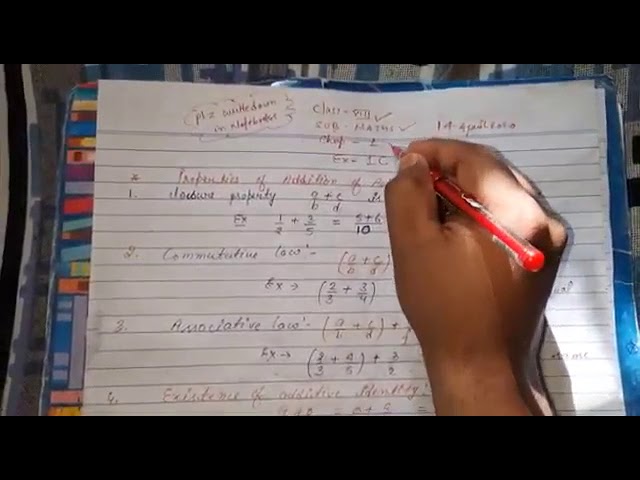 plz writedown
in Notebooks
Class - VIII
SUB - MATHS
14 April 2020
Chap - 1
Ex - 1C
* Properties of Addition of
1. closure property a/b + c/d is
Ex 1/2 + 3/5 = 5+6/10
2. Commutative law :- (a/b + c/d)
Ex → (2/3 + 3/4)
3. Associative law :- (a/b + c/d) +
Ex → (2/3 + 4/5) + 3/2 same
4. Existence of additive identity :